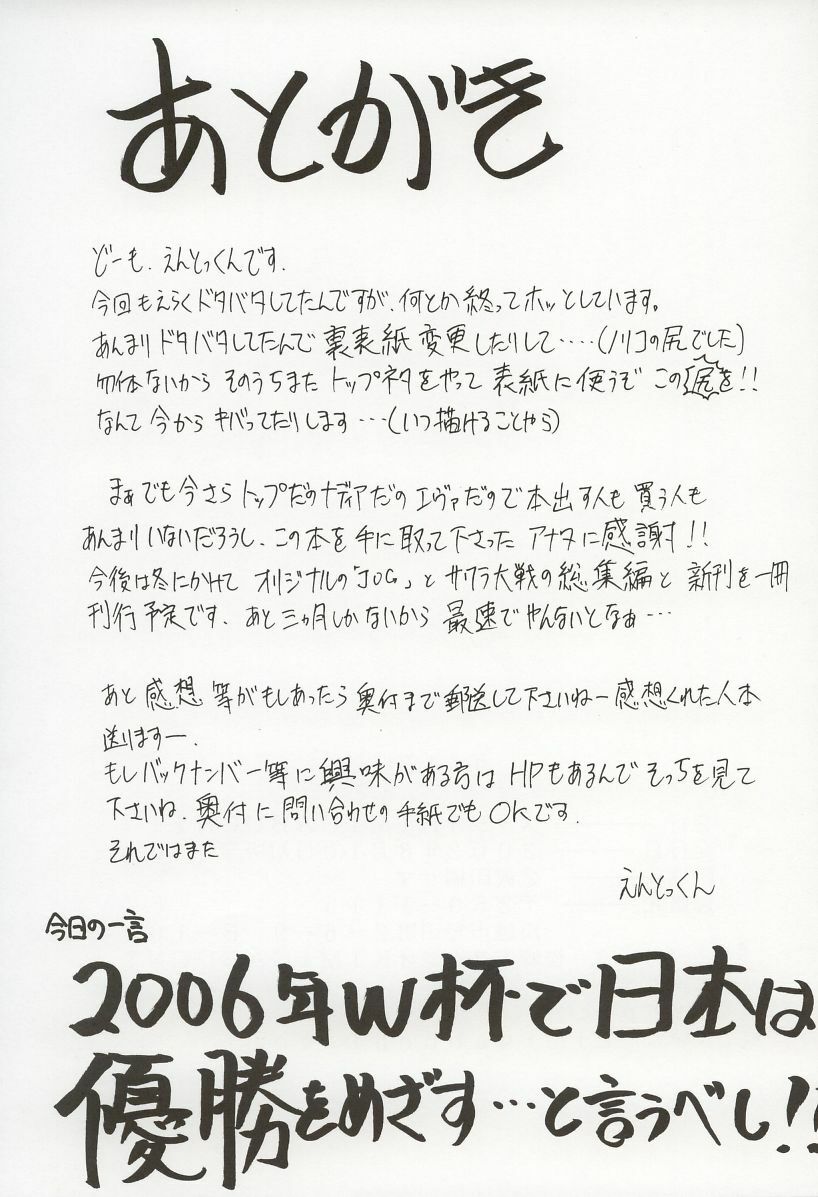 あとがき
どーも、えんとっくんです。
今回もえらくドタバタしてたんですが、何とか終ってホッとしています。
あんまりドタバタしてたんで裏表紙変更したりして……(ノリコの尻でした)
勿体ないから そのうちまた トップネタをやって 表紙に使うぞ この尻を!!
なんて 今から キバってたりします …(いつ描けることやら)
まぁでも今さらトップだのナディアだの エヴァだので本出す人も 買う人も
あんまりいないだろうし、この本を手に取って下さった アナタに感謝!!
今後は冬にかけて オリジナルの「JOG」と サクラ大戦の総集編と 新刊を一冊
刊行予定です、あと三ヵ月しかないから 最速でやんないとなぁ…
あと感想等がもしあったら奥付まで郵送して下さいねー感想くれた人本
送りますー、
もしバックナンバー等に興味がある方は HPもあるんでそっちを見て
下さいね、奥付に問い合わせの手紙でもOKです。
それではまた
えんとっくん
今日の一言
2006年W杯で日本は
優勝をめざす…と言うべし!!